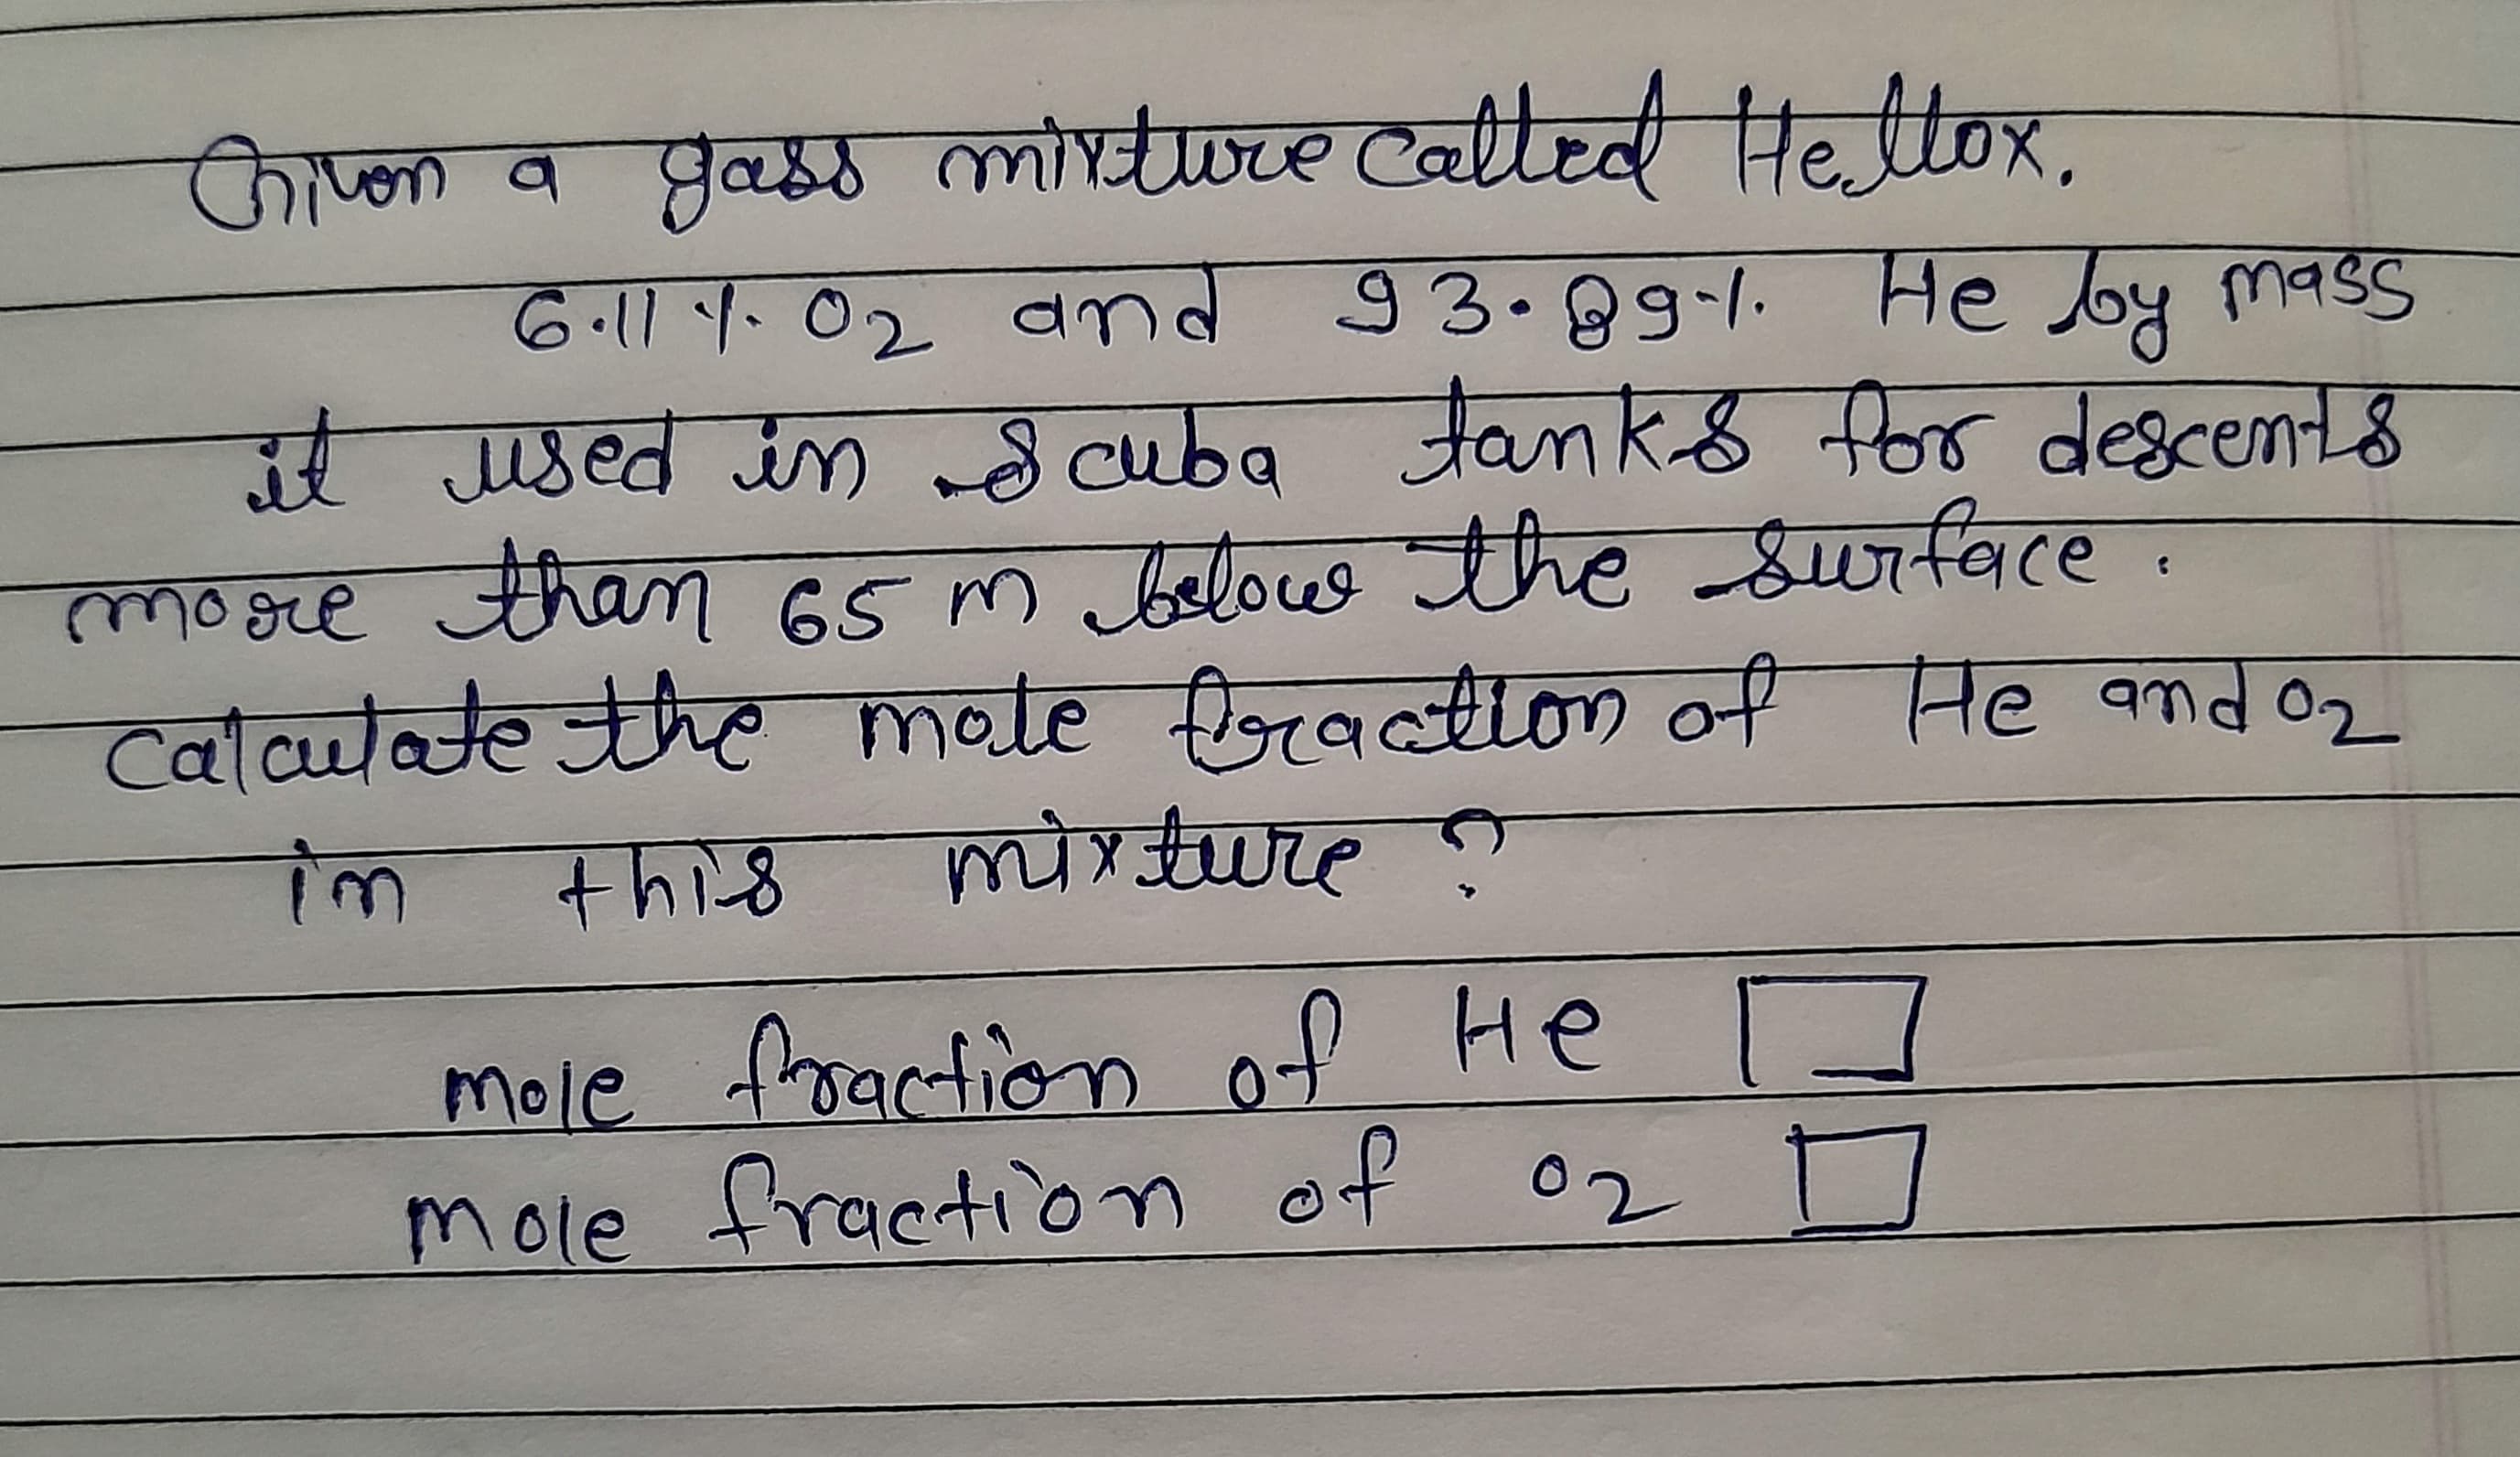 Given a gass mixture called Hellox.
6.11 % O2 and 93.89% He by mass
it used in scuba tanks for descents
more than 65 m below the surface.
calculate the mole fraction of He and O2
in this mixture?
mole fraction of He
mole fraction of O2